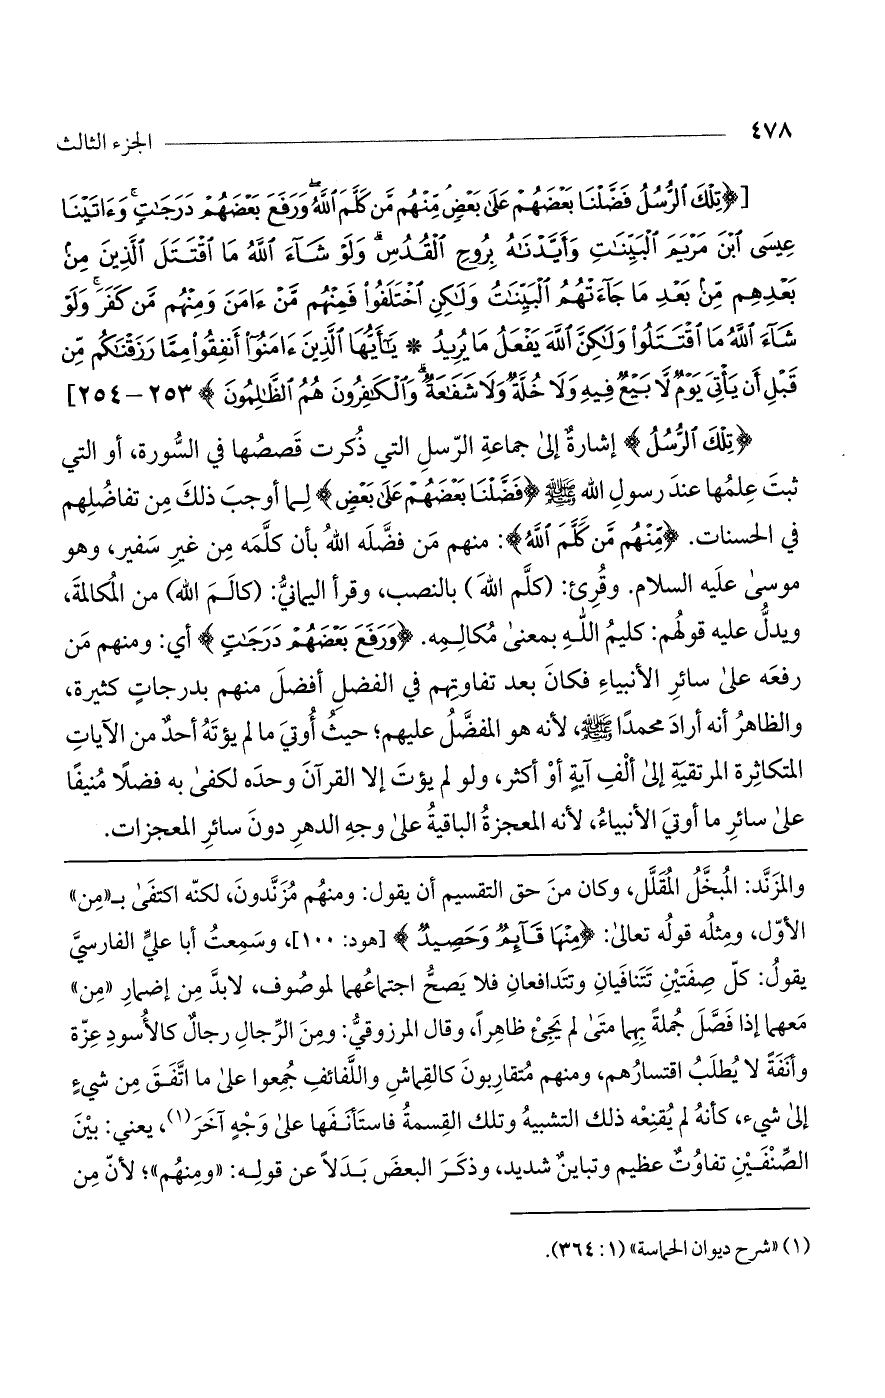 ٤٧٨ الجزء الثالث
[﴿تِلْكَ ٱلرُّسُلُ فَضَّلْنَا بَعْضَهُمْ عَلَىٰ بَعْضٍ مِّنْهُم مَّن كَلَّمَ ٱللَّهُ وَرَفَعَ بَعْضَهُمْ دَرَجَٰتٍ وَءَاتَيْنَا
عِيسَى ٱبْنَ مَرْيَمَ ٱلْبَيِّنَٰتِ وَأَيَّدْنَٰهُ بِرُوحِ ٱلْقُدُسِ وَلَوْ شَآءَ ٱللَّهُ مَا ٱقْتَتَلَ ٱلَّذِينَ مِنۢ
بَعْدِهِم مِّنۢ بَعْدِ مَا جَآءَتْهُمُ ٱلْبَيِّنَٰتُ وَلَٰكِنِ ٱخْتَلَفُوا۟ فَمِنْهُم مَّنْ ءَامَنَ وَمِنْهُم مَّن كَفَرَ وَلَوْ
شَآءَ ٱللَّهُ مَا ٱقْتَتَلُوا۟ وَلَٰكِنَّ ٱللَّهَ يَفْعَلُ مَا يُرِيدُ * يَٰٓأَيُّهَا ٱلَّذِينَ ءَامَنُوٓا۟ أَنفِقُوا۟ مِمَّا رَزَقْنَٰكُم مِّن
قَبْلِ أَن يَأْتِىَ يَوْمٌ لَّا بَيْعٌ فِيهِ وَلَا خُلَّةٌ وَلَا شَفَٰعَةٌ وَٱلْكَٰفِرُونَ هُمُ ٱلظَّٰلِمُونَ﴾ ٢٥٣ – ٢٥٤]
﴿تِلْكَ ٱلرُّسُلُ﴾ إشارةٌ إلىٰ جماعةِ الرّسلِ التي ذُكرت قَصصُها في السُّورة، أو التي
ثبتَ عِلمُها عندَ رسولِ الله ﷺ ﴿فَضَّلْنَا بَعْضَهُمْ عَلَىٰ بَعْضٍ﴾ لِـما أوجبَ ذلكَ مِن تفاضُلِهم
في الحسنات. ﴿مِّنْهُم مَّن كَلَّمَ ٱللَّهُ﴾: منهم مَن فضَّلَه اللهُ بأن كلَّمَه مِن غيرِ سَفير، وهو
موسىٰ علَيه السلام. وقُرِئ: (كلَّم اللهَ) بالنصب، وقرأ اليمانيُّ: (كالَـمَ اللهَ) من المُكالمة،
ويدلُّ عليه قولُهم: كليمُ اللهِ بمعنىٰ مُكالِـمِه. ﴿وَرَفَعَ بَعْضَهُمْ دَرَجَٰتٍ﴾ أي: ومنهم مَن
رفعَه علىٰ سائرِ الأنبياءِ فكانَ بعد تفاوتِهم في الفضلِ أفضلَ منهم بدرجاتٍ كثيرة،
والظاهرُ أنه أرادَ محمدًا ﷺ، لأنه هو المفضَّلُ عليهم؛ حيثُ أُوتيَ ما لم يؤتَهُ أحدٌ من الآياتِ
المتكاثِرة المرتقيَةِ إلىٰ ألْفِ آيةٍ أوْ أكثر، ولو لم يؤتَ إلا القرآنَ وحدَه لكفىٰ به فضلًا مُنيفًا
علىٰ سائرِ ما أوتيَ الأنبياءُ، لأنه المعجزةُ الباقيةُ علىٰ وجهِ الدهرِ دونَ سائرِ المعجزات.
والمزَنَّد: المُبخَّلُ المُقَلَّل، وكان منَ حق التقسيم أن يقول: ومنهُم مُزَنَّدونَ، لكنّه اكتفَىٰ بـ«مِن»
الأوّل، ومِثلُه قولُه تعالىٰ: ﴿مِنْهَا قَآئِمٌ وَحَصِيدٌ﴾ [هود: ١٠٠]، وسَمِعتُ أبا عليٍّ الفارسيَّ
يقولُ: كلّ صِفَتَيْنِ تَتَنافَيانِ وتتَدافعانِ فلا يَصحُّ اجتماعُهما لموصُوف، لابدَّ مِن إضمارِ «مِن»
مَعهما إذا فَصَّلَ جُملةً بِهِما متىٰ لم يَجِئْ ظاهراً، وقال المرزوقيُّ: ومِنَ الرِّجالِ رجالٌ كالأُسودِ عِزّة
وأنَفَةً لا يُطلَبُ اقتسارُهم، ومنهم مُتقاربونَ كالقِماشِ واللَّفائفِ جُمِعوا علىٰ ما اتَّفَقَ مِن شيءٍ
إلىٰ شيء، كأنهُ لم يُقنِعْه ذلك التشبيهُ وتلك القِسمةُ فاستَأنَـفَها علىٰ وَجْهٍ آخَرَ(١)، يعني: بيْنَ
الصِّنْفَـيْنِ تفاوُتٌ عظيم وتباينٌ شديد، وذكَـرَ البعضَ بَـدَلاً عن قولِـه: «ومِنهُم»؛ لأنّ مِن
(١) «شرح ديوان الحماسة» (١: ٣٦٤).